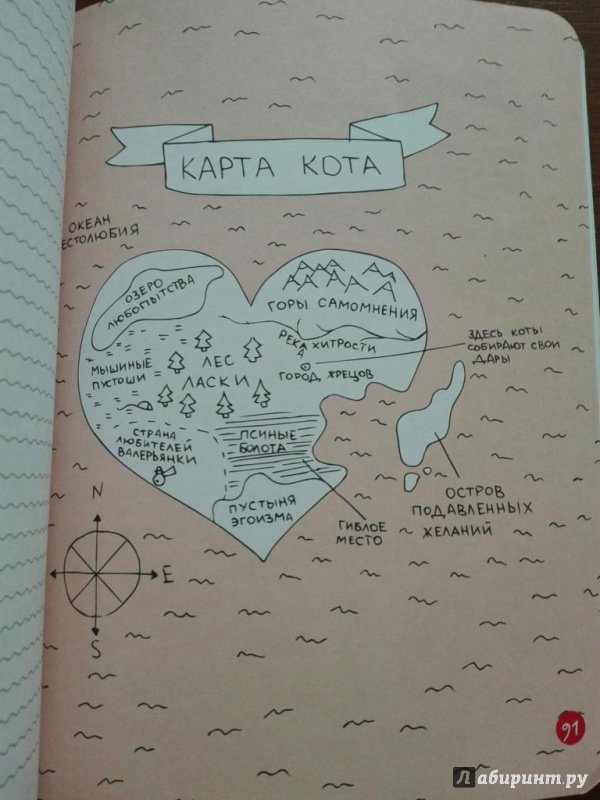 КАРТА КОТА
ОКЕАН
ЕСТОЛЮБИЯ
ОЗЕРО
ЛЮБОПЫТСТВА
ГОРЫ САМОМНЕНИЯ
РЕКА ХИТРОСТИ
ЗДЕСЬ КОТЫ
СОБИРАЮТ СВОИ
ДАРЫ
МЫШИНЫЕ
ПУСТОШИ
ЛЕС
ЛАСКИ
ГОРОД ЖРЕЦОВ
СТРАНА
ЛЮБИТЕЛЕЙ
ВАЛЕРЬЯНКИ
ПСИНЫЕ
БОЛОТА
ПУСТЫНЯ
ЭГОИЗМА
ГИБЛОЕ
МЕСТО
ОСТРОВ
ПОДАВЛЕННЫХ
ЖЕЛАНИЙ
N
E
S
91
Лабиринт.ру